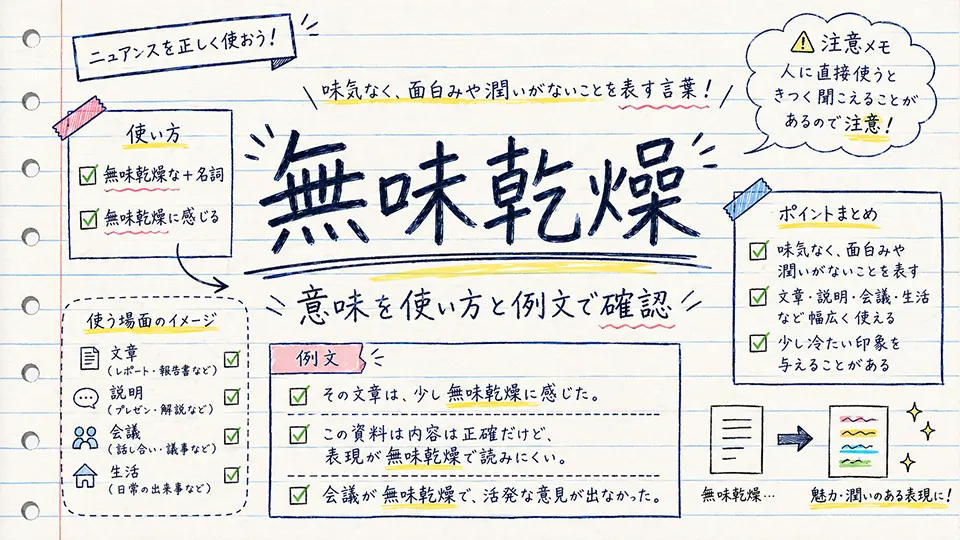 ニュアンスを正しく使おう!
味気なく、面白みや潤いがないことを表す言葉!
⚠ 注意メモ
人に直接使うと
きつく聞こえることが
あるので注意!
使い方
無味乾燥な+名詞
無味乾燥に感じる
無味乾燥
意味を使い方と例文で確認
ポイントまとめ
味気なく、面白みや
潤いがないことを表す
文章・説明・会議・生活
など幅広く使える
少し冷たい印象を
与えることがある
使う場面のイメージ
文章
(レポート・報告書など)
説明
(プレゼン・解説など)
会議
(話し合い・議事など)
生活
(日常の出来事など)
例文
その文章は、少し無味乾燥に感じた。
この資料は内容は正確だけど、
表現が無味乾燥で読みにくい。
会議が無味乾燥で、活発な意見が出なかった。
無味乾燥…
魅力・潤いのある表現に!